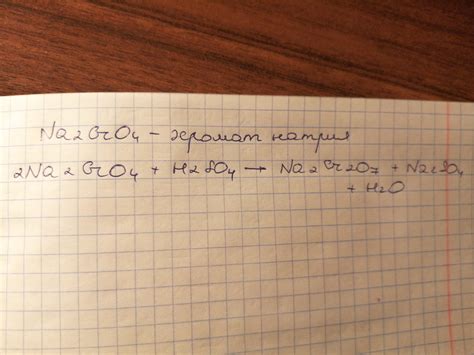 Na2CrO4 - хромат натрия
2Na2CrO4 + H2SO4 → Na2Cr2O7 + Na2SO4
+ H2O